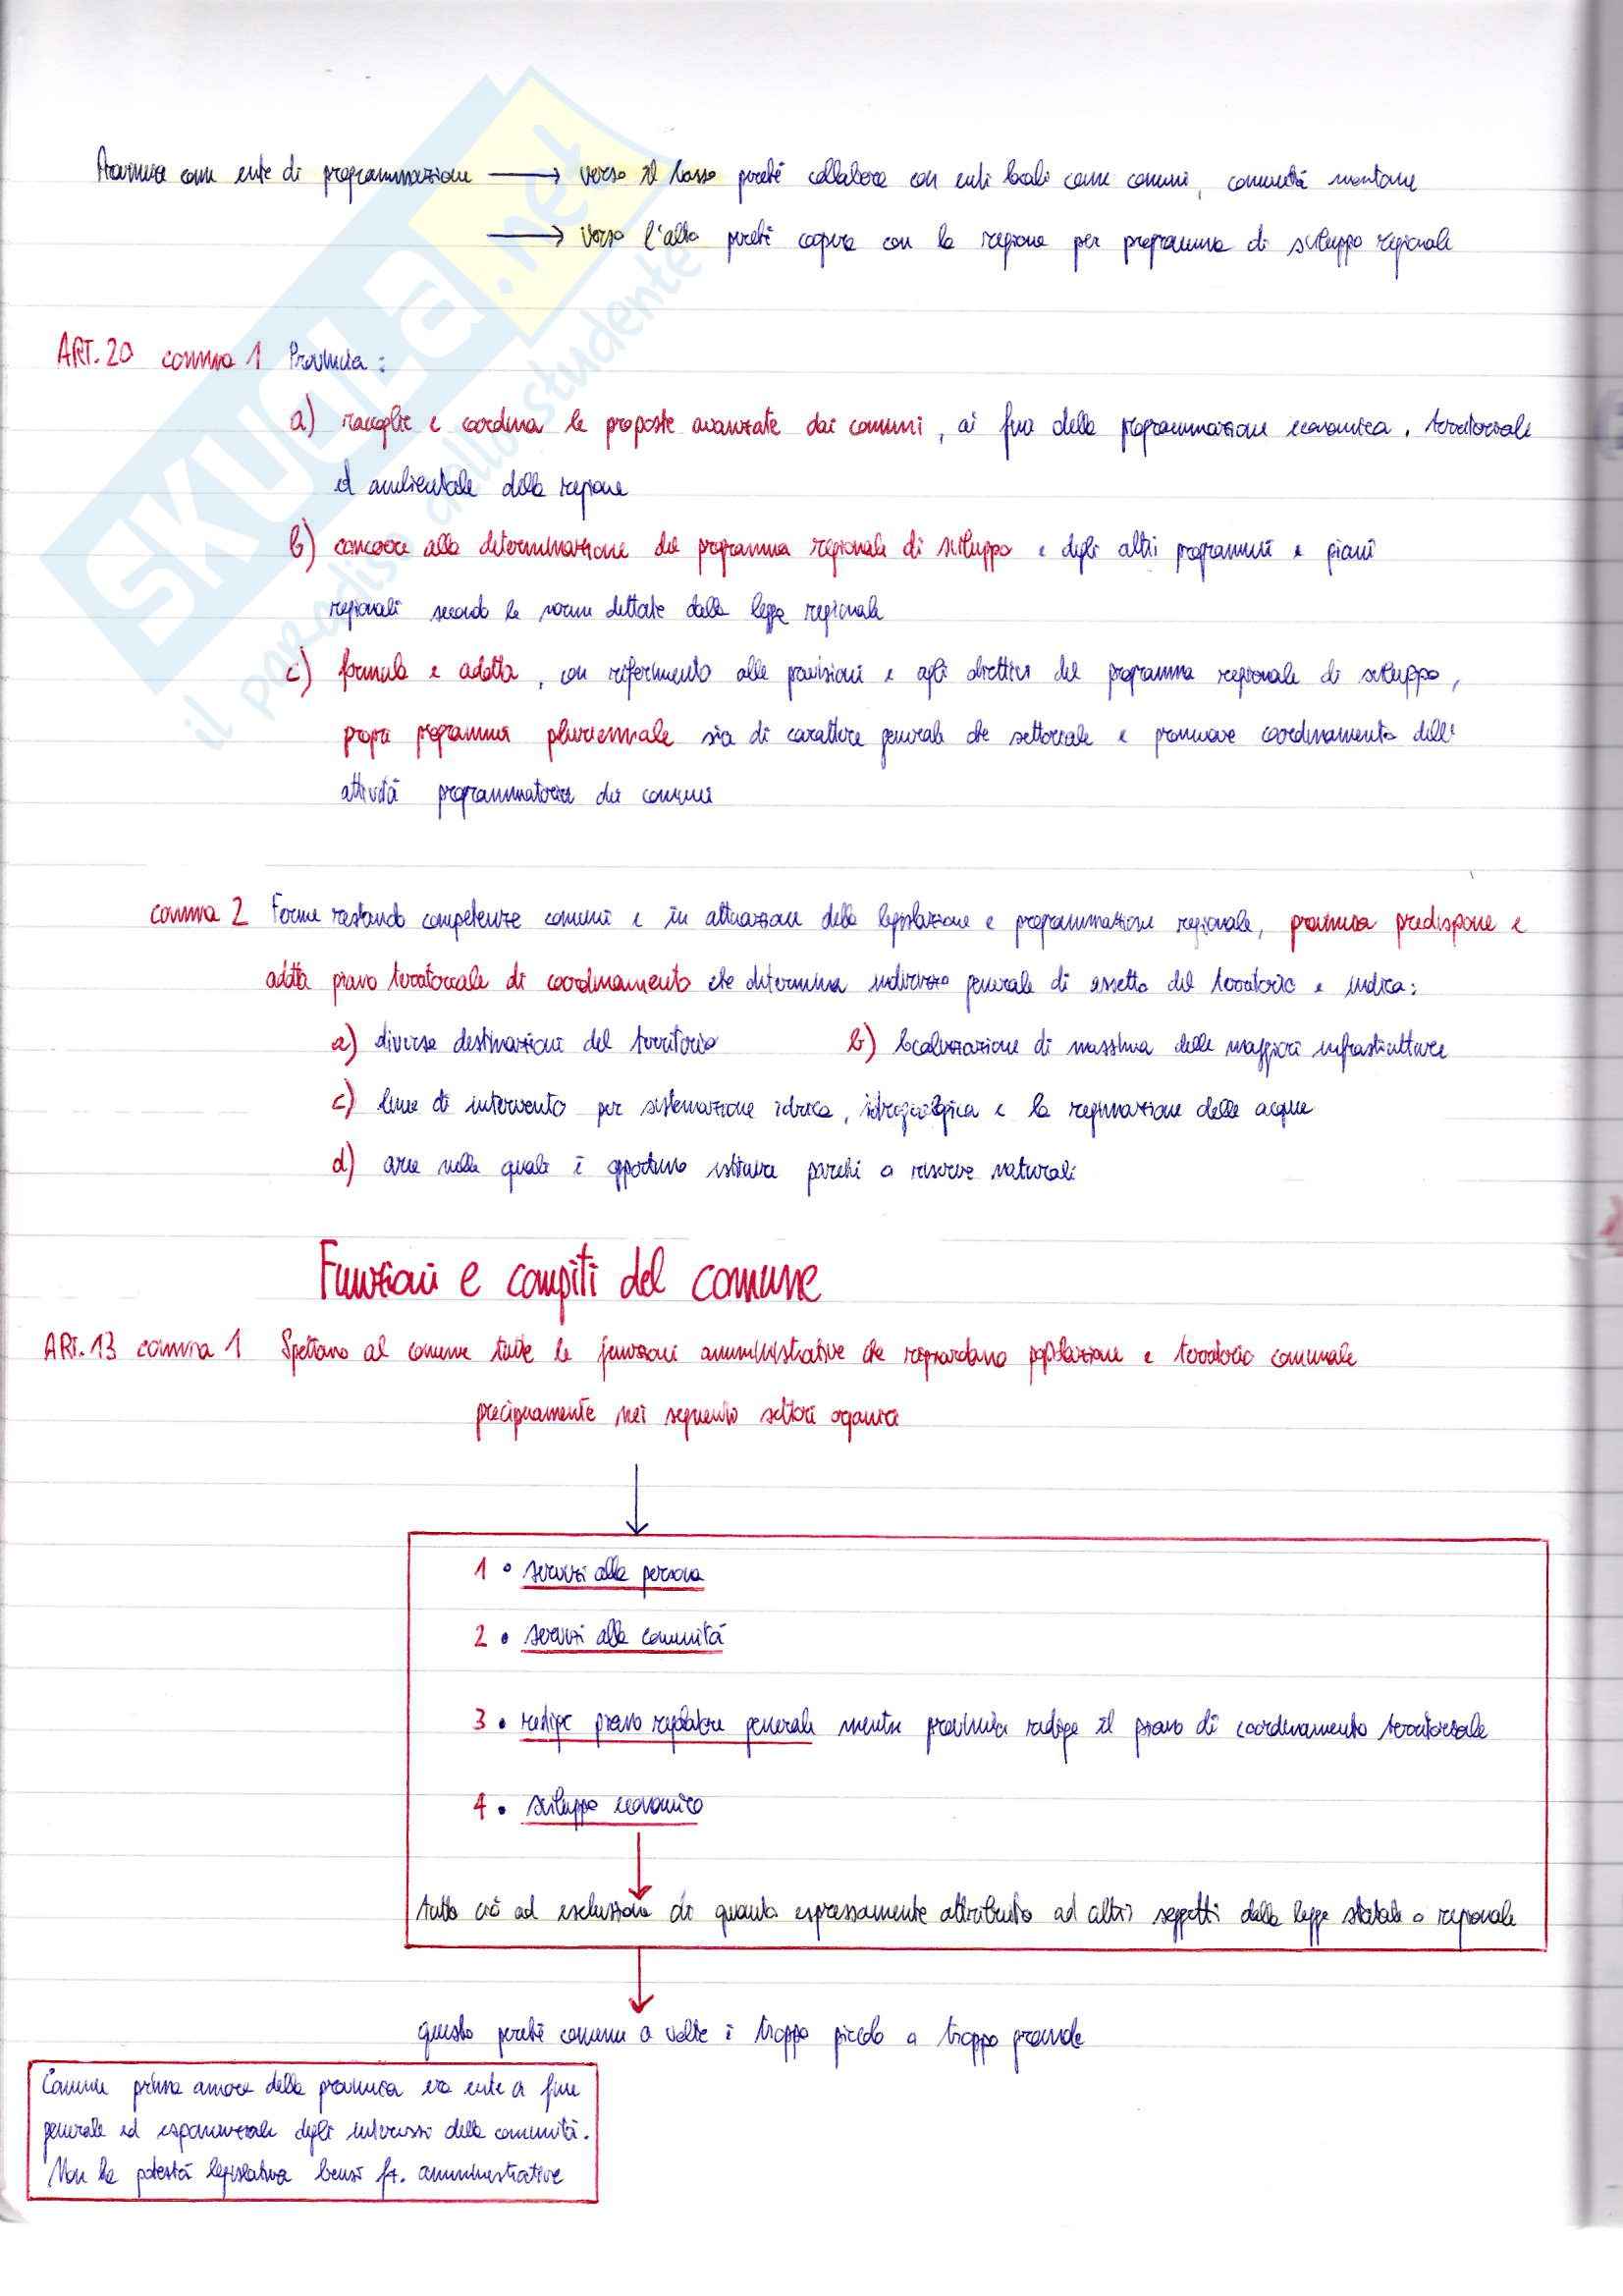 Provincia come ente di programmazione → verso il basso perché collabora con enti locali come comuni, comunità montane
→ verso l'alto perché coopera con la regione per programma di sviluppo regionali
ART. 20 comma 1 Provincia:
a) raccoglie e coordina le proposte avanzate dai comuni, ai fini della programmazione economica, territoriale
ed ambientale della regione
b) concorre alla determinazione del programma regionale di sviluppo e degli altri programmi e piani
regionali secondo le norme dettate dalla legge regionale
c) formula e adotta, con riferimento alle previsioni e agli direttivi del programma regionale di sviluppo,
propri programmi pluriennale sia di carattere generale che settoriale e promuove coordinamento dell'
attività programmatoria dei comuni
comma 2 Ferme restando competenze comuni e in attuazione della legislazione e programmazione regionale, provincia predispone e
adotta piano territoriale di coordinamento che determina indirizzo generale di assetto del territorio e indica:
a) diverse destinazioni del territorio b) localizzazione di massima delle maggiori infrastrutture
c) linee di intervento per sistemazione idrica, idrogeologica e la regimazione delle acque
d) aree nelle quale è opportuno istituire parchi o riserve naturali
Funzioni e compiti del comune
ART. 13 comma 1 Spettano al comune tutte le funzioni amministrative che riguardano popolazione e territorio comunale
precipuamente nei seguenti settori organici
1 • servizi alla persona
2 • servizi alla comunità
3 • redige piano regolatore generale mentre provincia redige il piano di coordinamento territoriale
4 • sviluppo economico
tutto ciò ad esclusione di quanto espressamente attribuito ad altri soggetti dalla legge statale o regionale
questo perché comune a volte è troppo piccolo o troppo grande
Comune prima ancora della provincia era ente a fine
generale ed esponenziale degli interessi della comunità.
Non ha potestà legislativa bensì fz. amministrative
SKUOLA.net
il paradiso dello studente